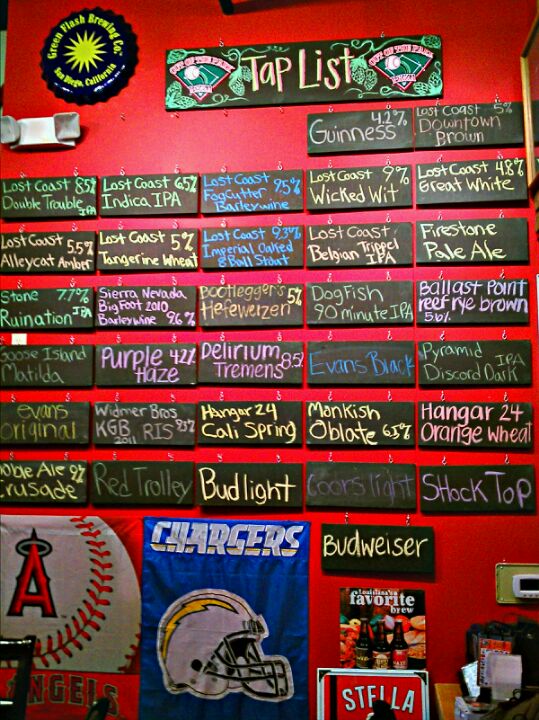 Green Flash Brewing Co.
San Diego, California
OUT OF THE PARK
PIZZA
Tap List
OUT OF THE PARK
PIZZA
Guinness 4.2%
Lost Coast 5%
Downtown
Brown
Lost Coast 8.5%
Double Trouble IPA
Lost Coast 6.5%
Indica IPA
Lost Coast
FogCutter 9.5%
Barleywine
Lost Coast 9%
Wicked Wit
Lost Coast 4.8%
Great White
Lost Coast 5.5%
Alleycat Amber
Lost Coast 5%
Tangerine Wheat
Lost Coast 9.3%
Imperial Oaked
8 Ball Stout
Lost Coast
Belgian Trippel
IPA
Firestone
Pale Ale
Stone 7.7%
Ruination IPA
Sierra Nevada
BigFoot 2010
Barleywine 9.6%
Bootlegger's 5%
Hefeweizen
DogFish
90 minute IPA
Ballast Point
reef rye brown
5.6%
Goose Island
Matilda
Purple 4.2%
Haze
Delirium
Tremens 8.5%
Evans Black
Pyramid IPA
Discord Dark
evans
original
Widmer Bros
KGB RIS 9.3%
2011
Hangar 24
Cali Spring
Monkish
Oblate 6.5%
Hangar 24
Orange wheat
Noble Ale 9%
Crusade
Red Trolley
Bud light
Coors light
SHock Top
Budweiser
A
ANGELS
CHARGERS
Louisiana's
favorite
brew
STELLA